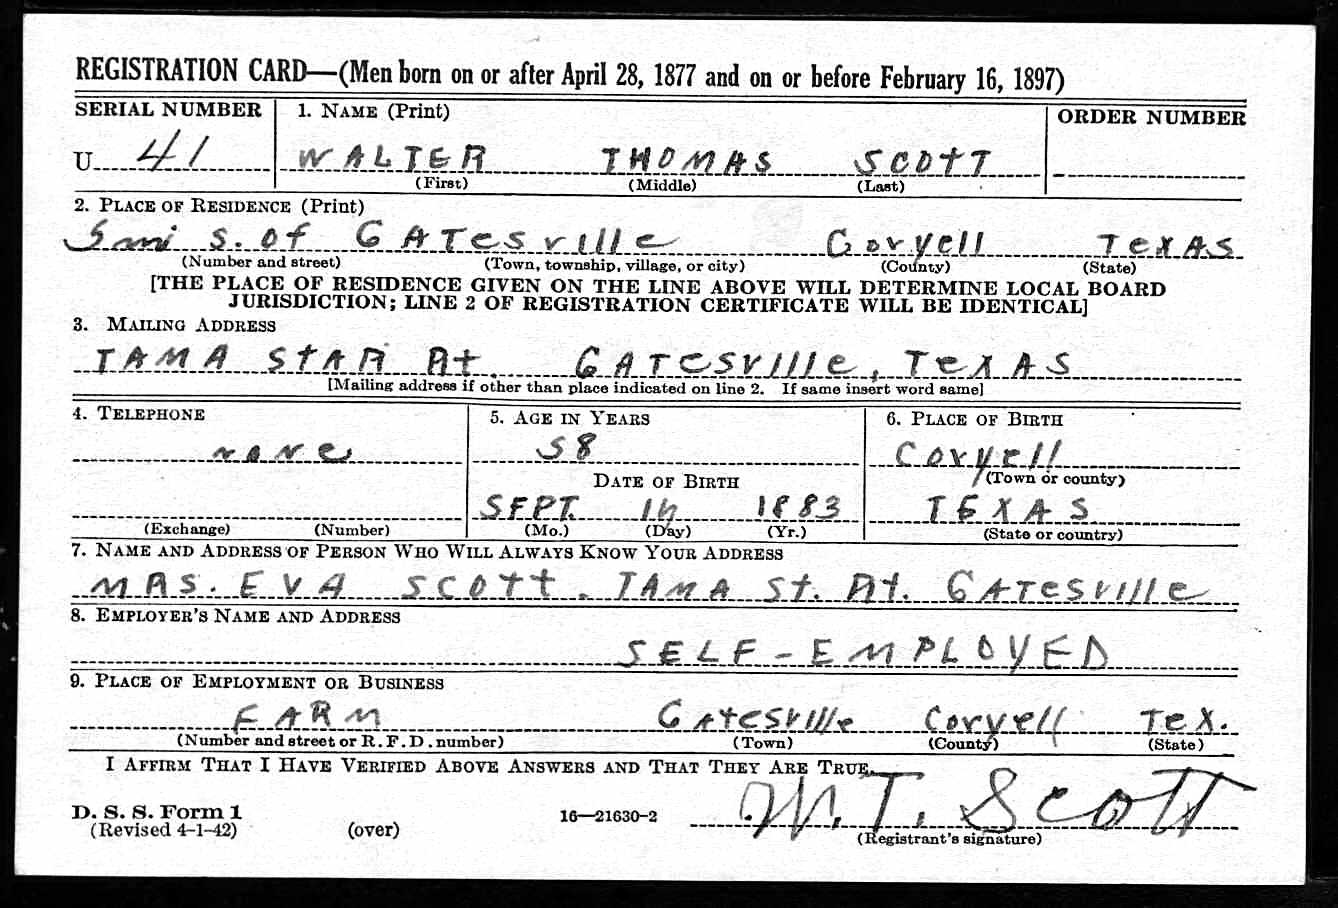 REGISTRATION CARD—(Men born on or after April 28, 1877 and on or before February 16, 1897)
SERIAL NUMBER 1. NAME (Print) ORDER NUMBER
U 41 WALTER THOMAS SCOTT
(First) (Middle) (Last)
2. PLACE OF RESIDENCE (Print)
5 mi S. of GATesville Coryell TexAS
(Number and street) (Town, township, village, or city) (County) (State)
[THE PLACE OF RESIDENCE GIVEN ON THE LINE ABOVE WILL DETERMINE LOCAL BOARD
JURISDICTION; LINE 2 OF REGISTRATION CERTIFICATE WILL BE IDENTICAL]
3. MAILING ADDRESS
TAMA STAR Rt. GATesville, TeXAS
[Mailing address if other than place indicated on line 2. If same insert word same]
4. TELEPHONE 5. AGE IN YEARS 6. PLACE OF BIRTH
none 58 Coryell
(Town or county)
DATE OF BIRTH
SEPT. 1883 TEXAS
(Exchange) (Number) (Mo.) (Day) (Yr.) (State or country)
7. NAME AND ADDRESS OF PERSON WHO WILL ALWAYS KNOW YOUR ADDRESS
MRS. EVA SCOtt. TAMA St. Rt. GATesville
8. EMPLOYER'S NAME AND ADDRESS
SELF-EMPLOYED
9. PLACE OF EMPLOYMENT OR BUSINESS
FARM Gatesville Coryell Tex.
(Number and street or R. F. D. number) (Town) (County) (State)
I AFFIRM THAT I HAVE VERIFIED ABOVE ANSWERS AND THAT THEY ARE TRUE.
W.T. Scott
D. S. S. Form 1
(Revised 4-1-42) (over) 16—21630-2
(Registrant's signature)